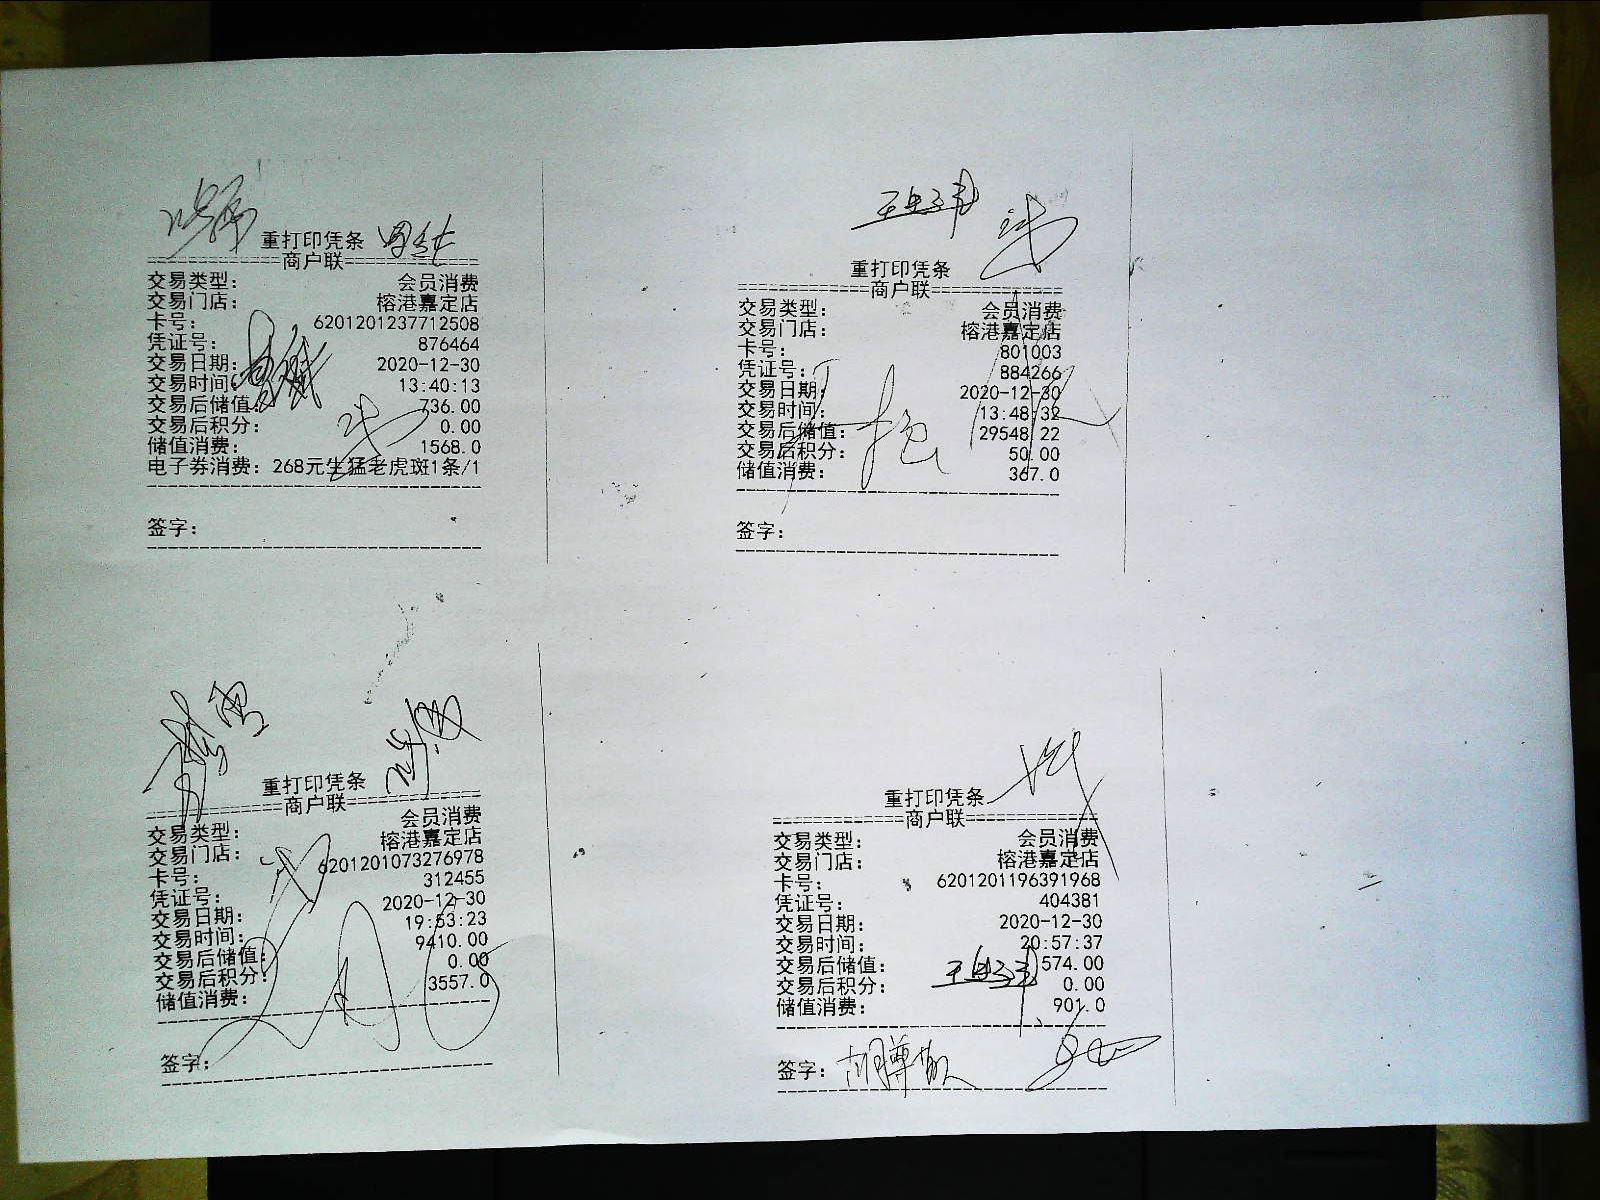 重打印凭条
============商户联============
交易类型： 会员消费
交易门店： 榕港嘉定店
卡号： 6201201237712508
凭证号： 876464
交易日期： 2020-12-30
交易时间： 13:40:13
交易后储值： 736.00
交易后积分： 0.00
储值消费： 1568.0
电子券消费：268元生猛老虎斑1条/1
签字：
重打印凭条
============商户联============
交易类型： 会员消费
交易门店： 榕港嘉定店
卡号： 801003
凭证号： 884266
交易日期： 2020-12-30
交易时间： 13:48:32
交易后储值： 29548.22
交易后积分： 50.00
储值消费： 367.0
签字：
重打印凭条
============商户联============
交易类型： 会员消费
交易门店： 榕港嘉定店
卡号： 6201201073276978
凭证号： 312455
交易日期： 2020-12-30
交易时间： 19:53:23
交易后储值： 9410.00
交易后积分： 0.00
储值消费： 3557.0
签字：
重打印凭条
============商户联============
交易类型： 会员消费
交易门店： 榕港嘉定店
卡号： 6201201196391968
凭证号： 404381
交易日期： 2020-12-30
交易时间： 20:57:37
交易后储值： 574.00
交易后积分： 0.00
储值消费： 901.0
签字：